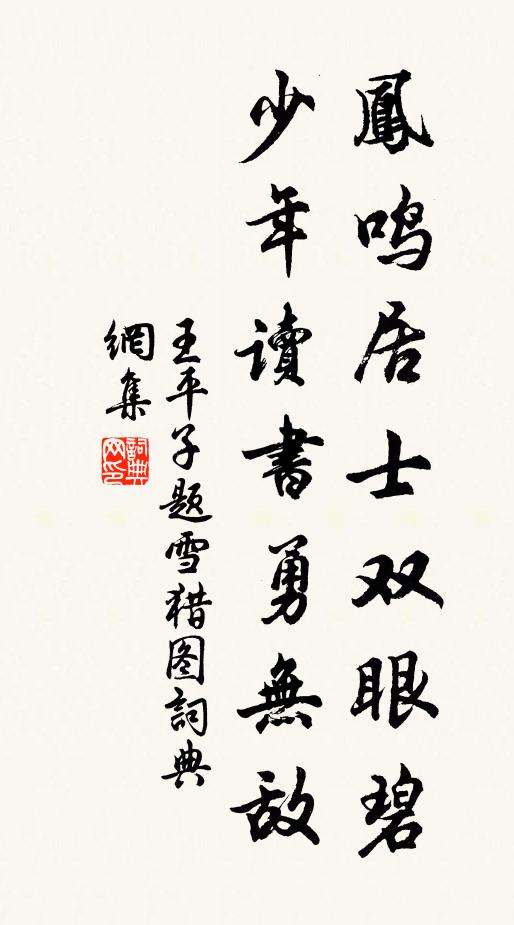 鳳鸣居士双眼碧
少年讀書勇無敌
王平子题雪猎图詞典
網集
詞典
网印